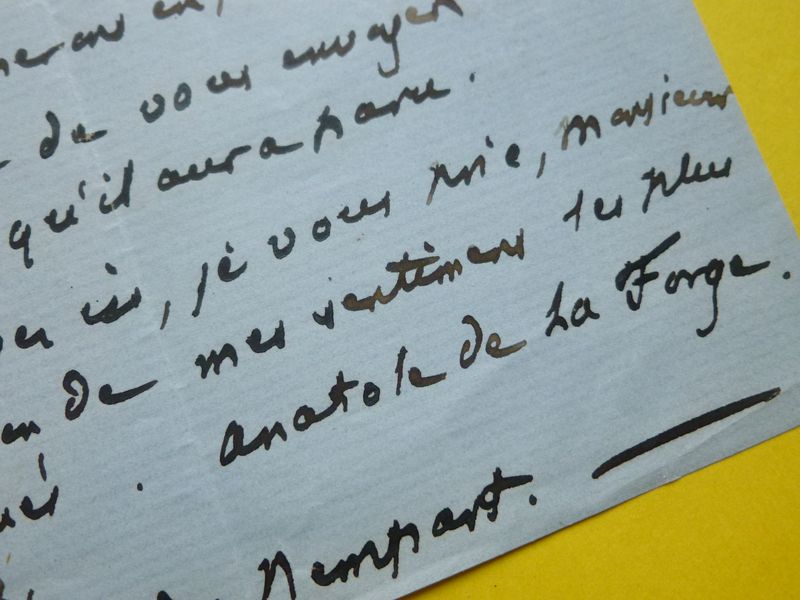 de vous envoyer
qu'il aura paru.
ici, je vous prie, Monsieur
de mes sentimens les plus
Anatole de La Forge.
Rempart.